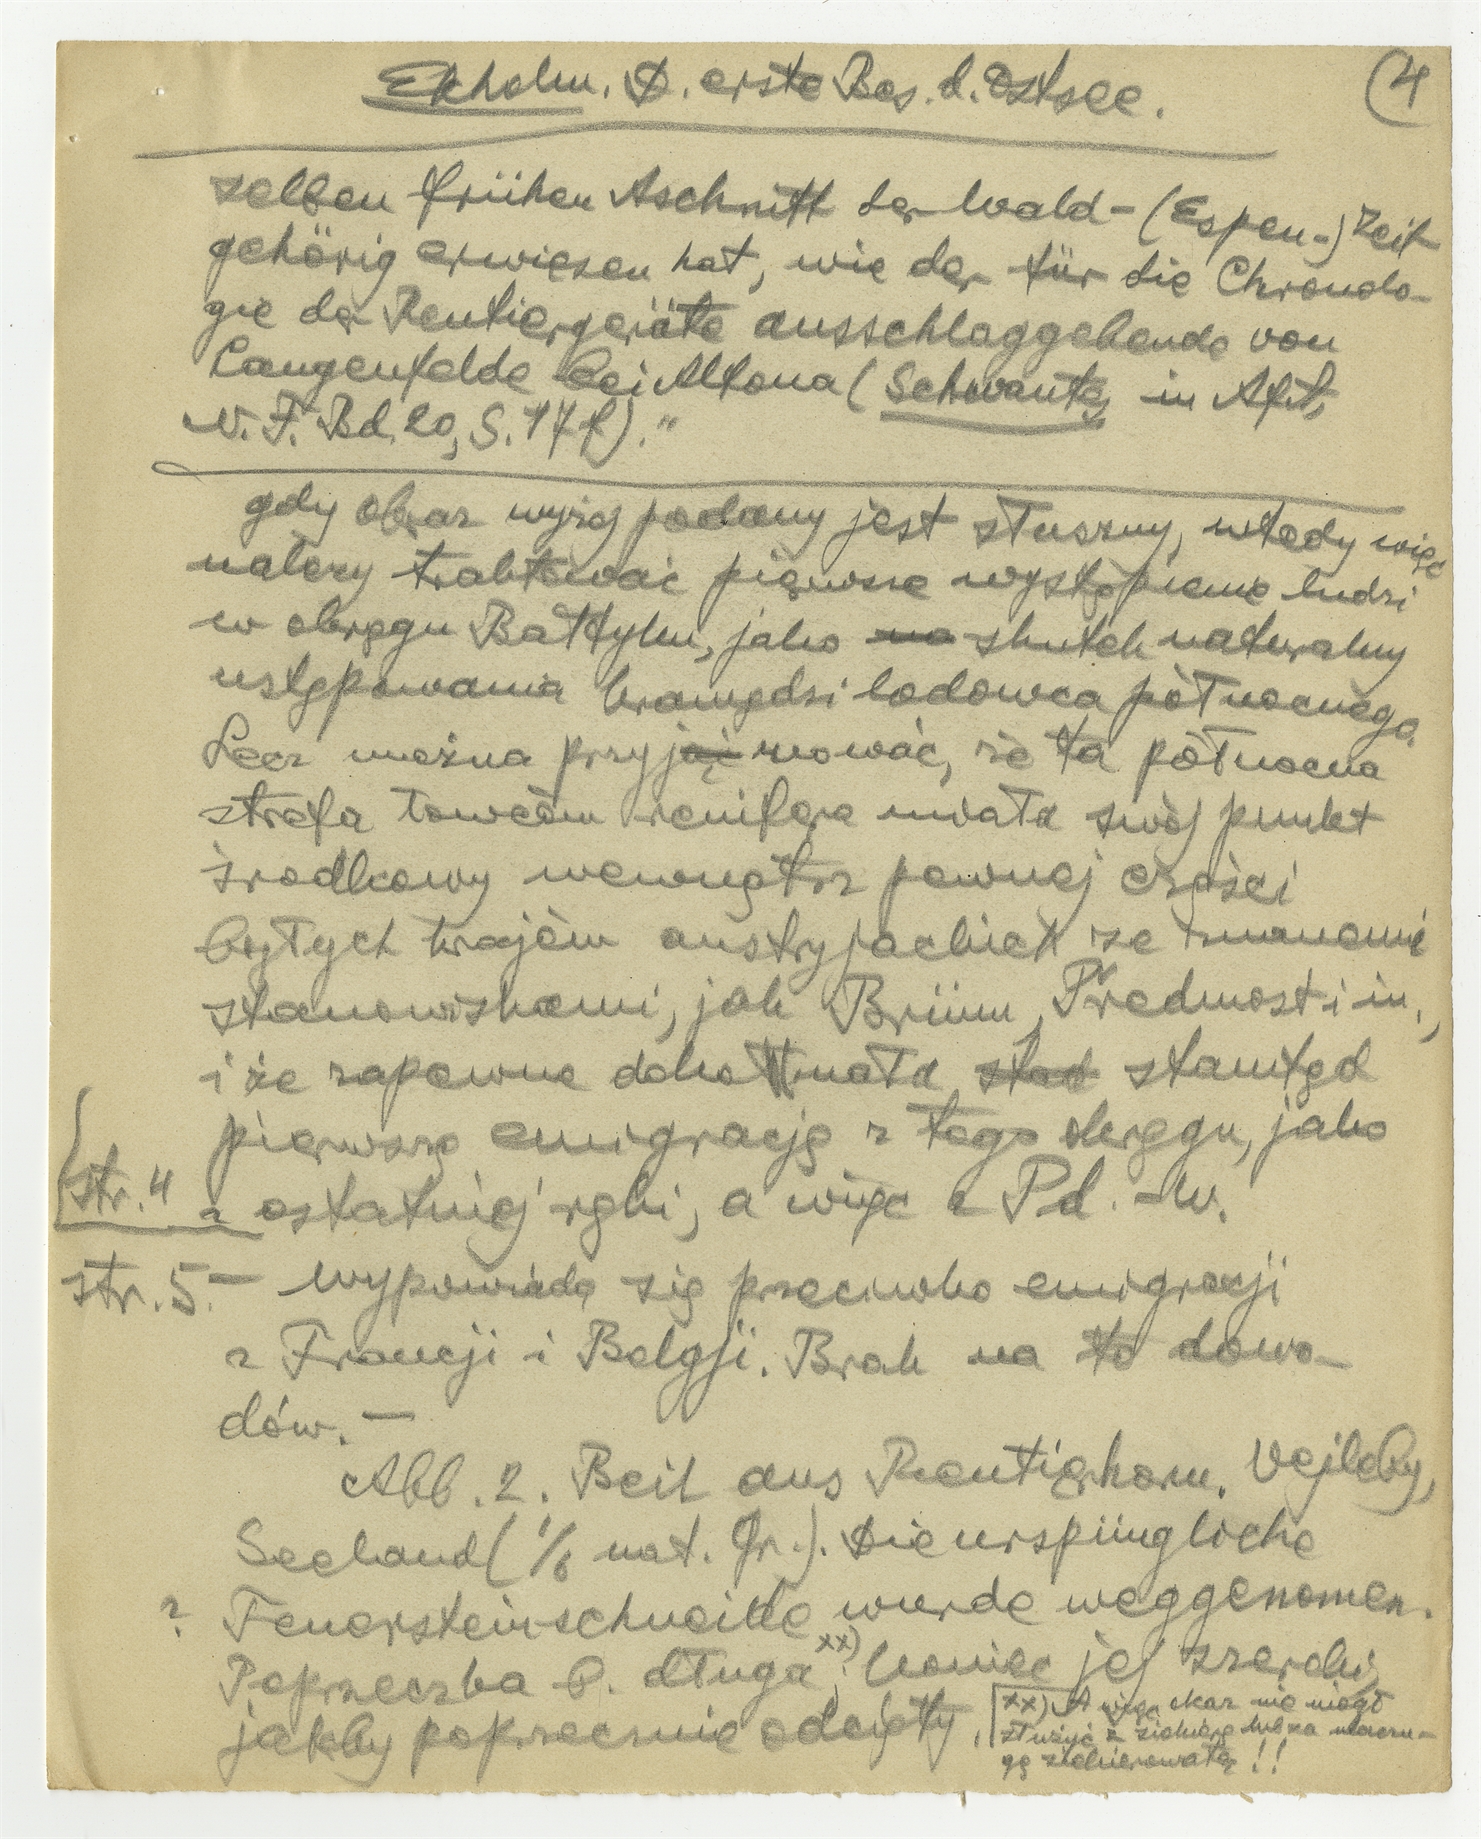 Ekholm. D. erste Bes. d. Ostsee.
(4
selben frühen Aschnitt der Wald-(Espen-)Zeit
gehörig erwiesen hat, wie der für die Chronolo-
gie der Rentiergeräte ausschlaggebende von
Langenfelde bei Altona (Schwantes in Afst.
N. F. Bd. 20, S. 17 f)."
gdy obraz wyżej podany jest słuszny, wtedy więc
należy traktować pierwsze wystąpienie ludzi
w okręgu Bałtyku, jako na skutek naturalny
ustępowania krawędzi lodowca północnego.
Lecz można przyjąć mować, że ta północna
strefa łowców renifera miała swój punkt
środkowy wewnątrz pewnej części
byłych krajów austryjackich ze znanemi
stanowiskami, jak Brünn, Předmost i in.,
i że zapewne dokonała stad stamtąd
pierwszą emigrację z tego okręgu, jako
str. 4 z ostatniej ręki, a więc z Pd.-W.
str. 5. — wypowiada się przeciwko emigracji
z Francji i Belgji. Brak na to dowo-
dów. —
Abb. 2. Beil aus Rentierhorn. Vejleby,
Seeland (1/6 nat. Gr.). Die urspüngliche
? Feuersteinschneide wurde weggenomen.
Poprzeczka b. długa xx), koniec jej szeroki,
jakby poprzecznie odcięty.
xx) A więc okaz nie mógł
służyć z siekierę lub za maczu-
gę siekierowatą!!